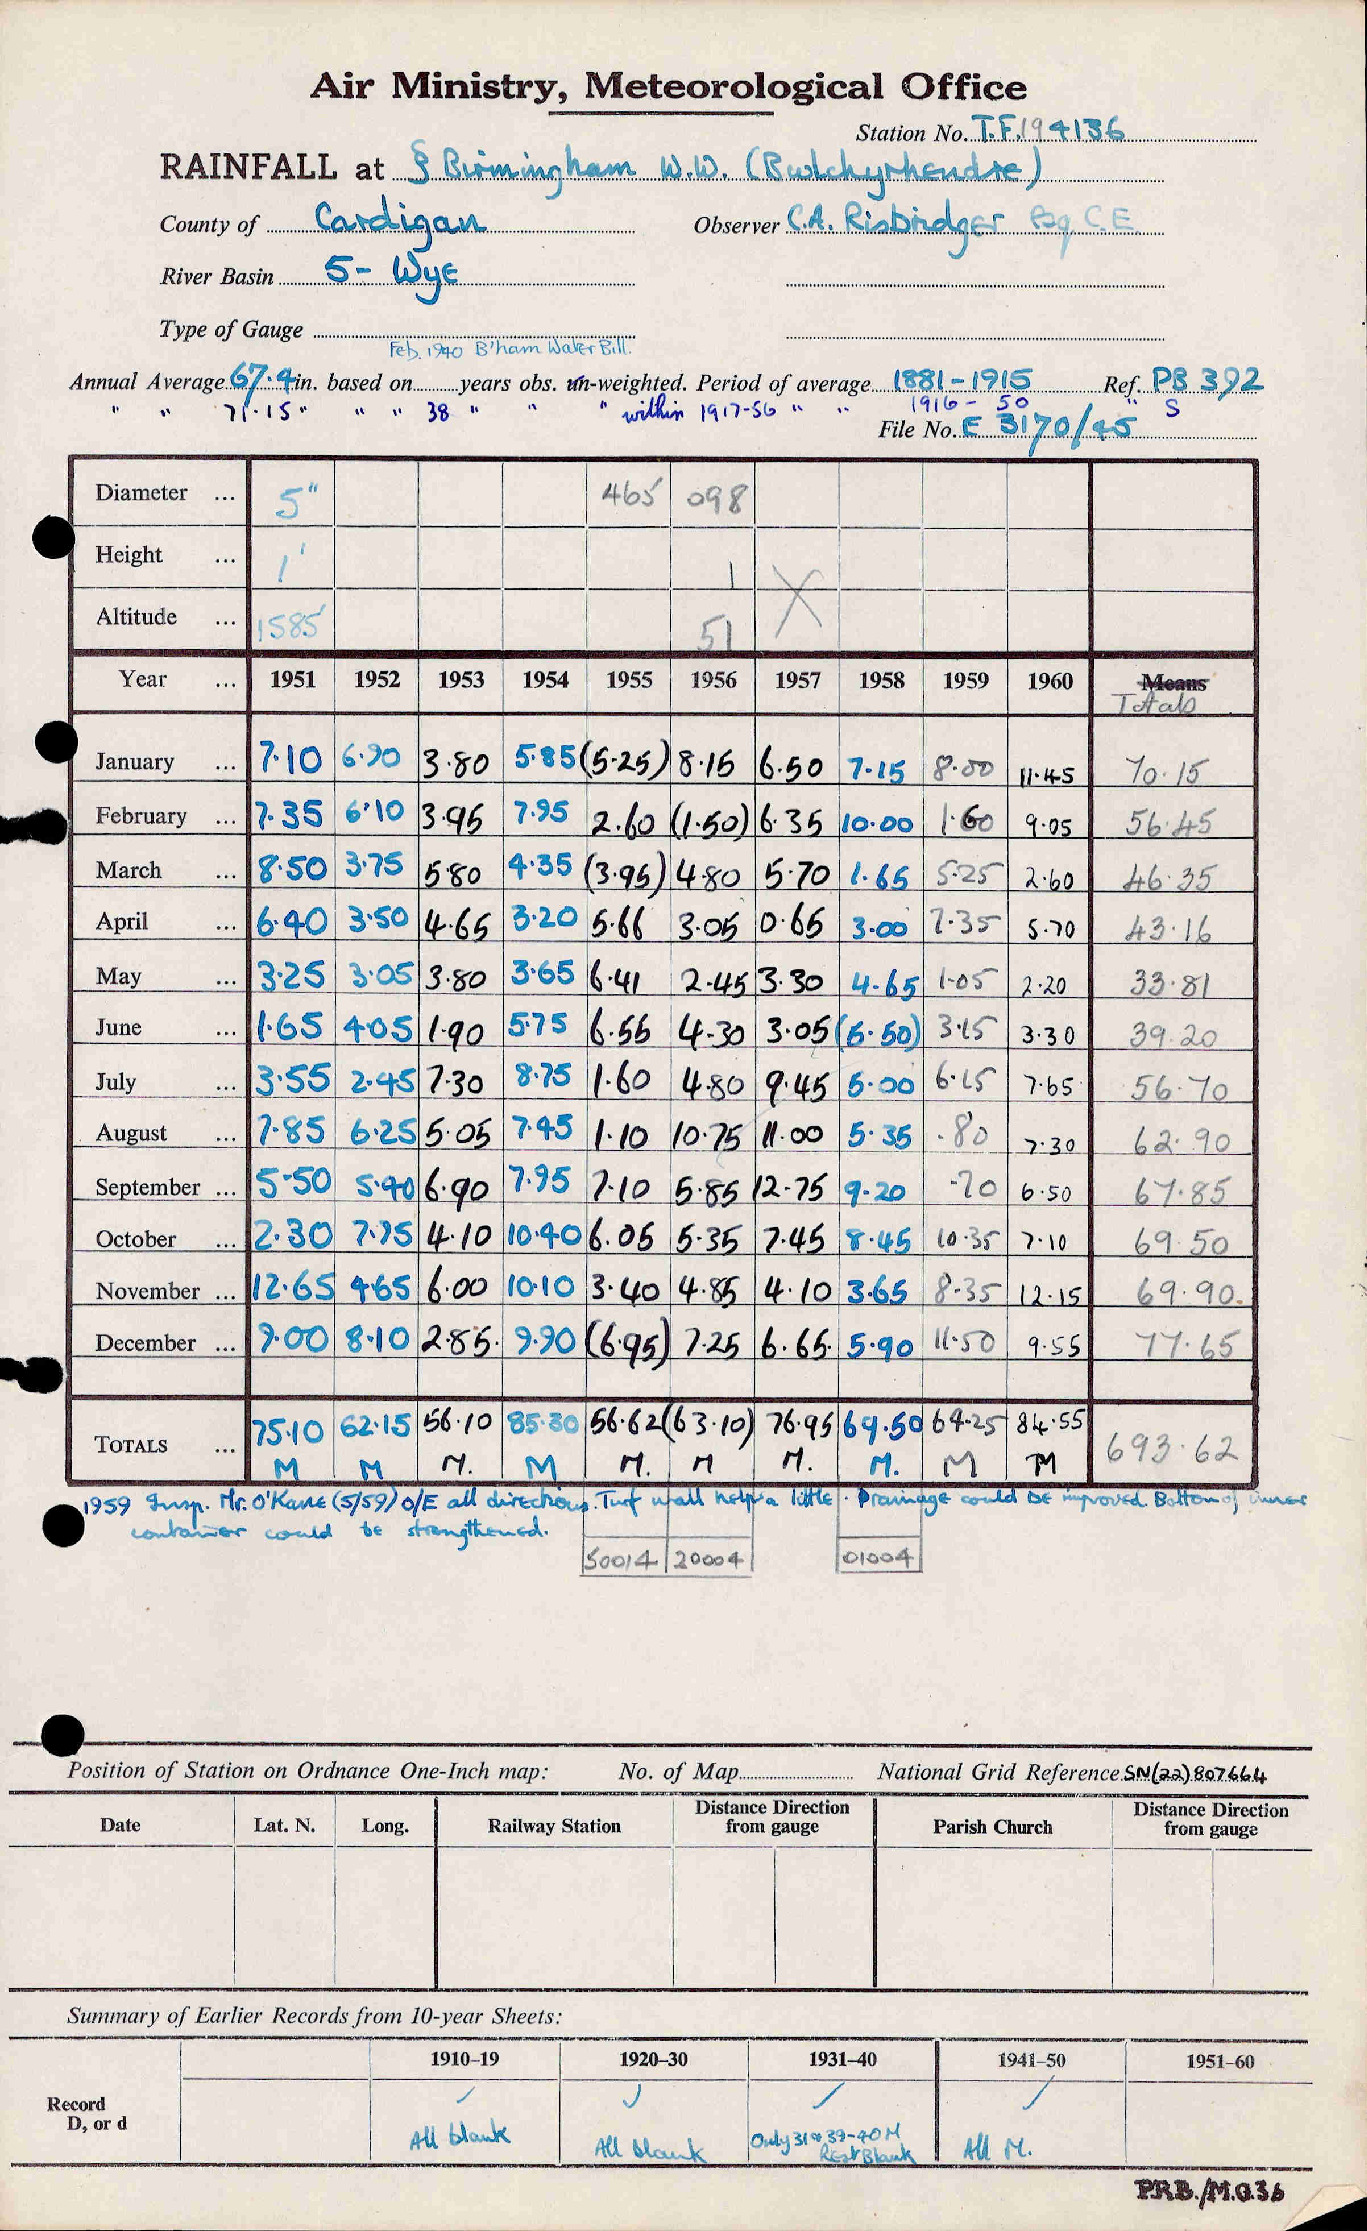 Air Ministry, Meteorological Office
Station No. T.F. 194136
RAINFALL at § Birmingham W.W. (Bwlchyrhendre)
County of Cardigan Observer C.A. Risbridger Esq. C.E.
River Basin 5- Wye
Type of Gauge
Feb. 1940 B'ham Water Bill.
Annual Average 67.4 in. based on years obs. un-weighted. Period of average 1881-1915 Ref. PB 392
" " 71.15 " " " 38 " " " within 1917-56 " " 1916-50 " S
File No. E 3170/45
Diameter ... 5" 465 098
Height ... 1' 1
Altitude ... 1585' 51 X
Year ... 1951 1952 1953 1954 1955 1956 1957 1958 1959 1960 Means
Totals
January ... 7.10 6.90 3.80 5.85 (5.25) 8.15 6.50 7.15 8.00 11.45 70.15
February ... 7.35 6.10 3.95 7.95 2.60 (1.50) 6.35 10.00 1.60 9.05 56.45
March ... 8.50 3.75 5.80 4.35 (3.95) 4.80 5.70 1.65 5.25 2.60 46.35
April ... 6.40 3.50 4.65 3.20 5.66 3.05 0.65 3.00 7.35 5.70 43.16
May ... 3.25 3.05 3.80 3.65 6.41 2.45 3.30 4.65 1.05 2.20 33.81
June ... 1.65 4.05 1.90 5.75 6.55 4.30 3.05 (5.50) 3.15 3.30 39.20
July ... 3.55 2.45 7.30 8.75 1.60 4.80 9.45 5.00 6.15 7.65 56.70
August ... 7.85 6.25 5.05 7.45 1.10 10.75 11.00 5.35 .80 7.30 62.90
September ... 5.50 5.40 6.90 7.95 7.10 5.85 12.75 9.20 .70 6.50 67.85
October ... 2.30 7.95 4.10 10.40 6.05 5.35 7.45 8.45 10.35 7.10 69.50
November ... 12.65 4.65 6.00 10.10 3.40 4.85 4.10 3.65 8.35 12.15 69.90
December ... 9.00 8.10 2.85 9.90 (6.95) 7.25 6.65 5.90 11.50 9.55 77.65
TOTALS ... 75.10 62.15 56.10 85.30 56.62 (63.10) 76.95 69.50 64.25 84.55 693.62
M M M. M M. M M. M. M M
1959 Insp. Mr. O'Kane (5/59) O/E all directions. Turf wall help a little. Drainage could be improved. Bottom of inner
container could be strengthened.
50014 20004 01004
Position of Station on Ordnance One-Inch map: No. of Map National Grid Reference SN(22)807664
Date Lat. N. Long. Railway Station Distance Direction from gauge Parish Church Distance Direction from gauge
Summary of Earlier Records from 10-year Sheets:
1910-19 1920-30 1931-40 1941-50 1951-60
Record
D, or d
All blank All blank Only 31 & 39-40 M Rest Blank All M.
PRB./M.O.36